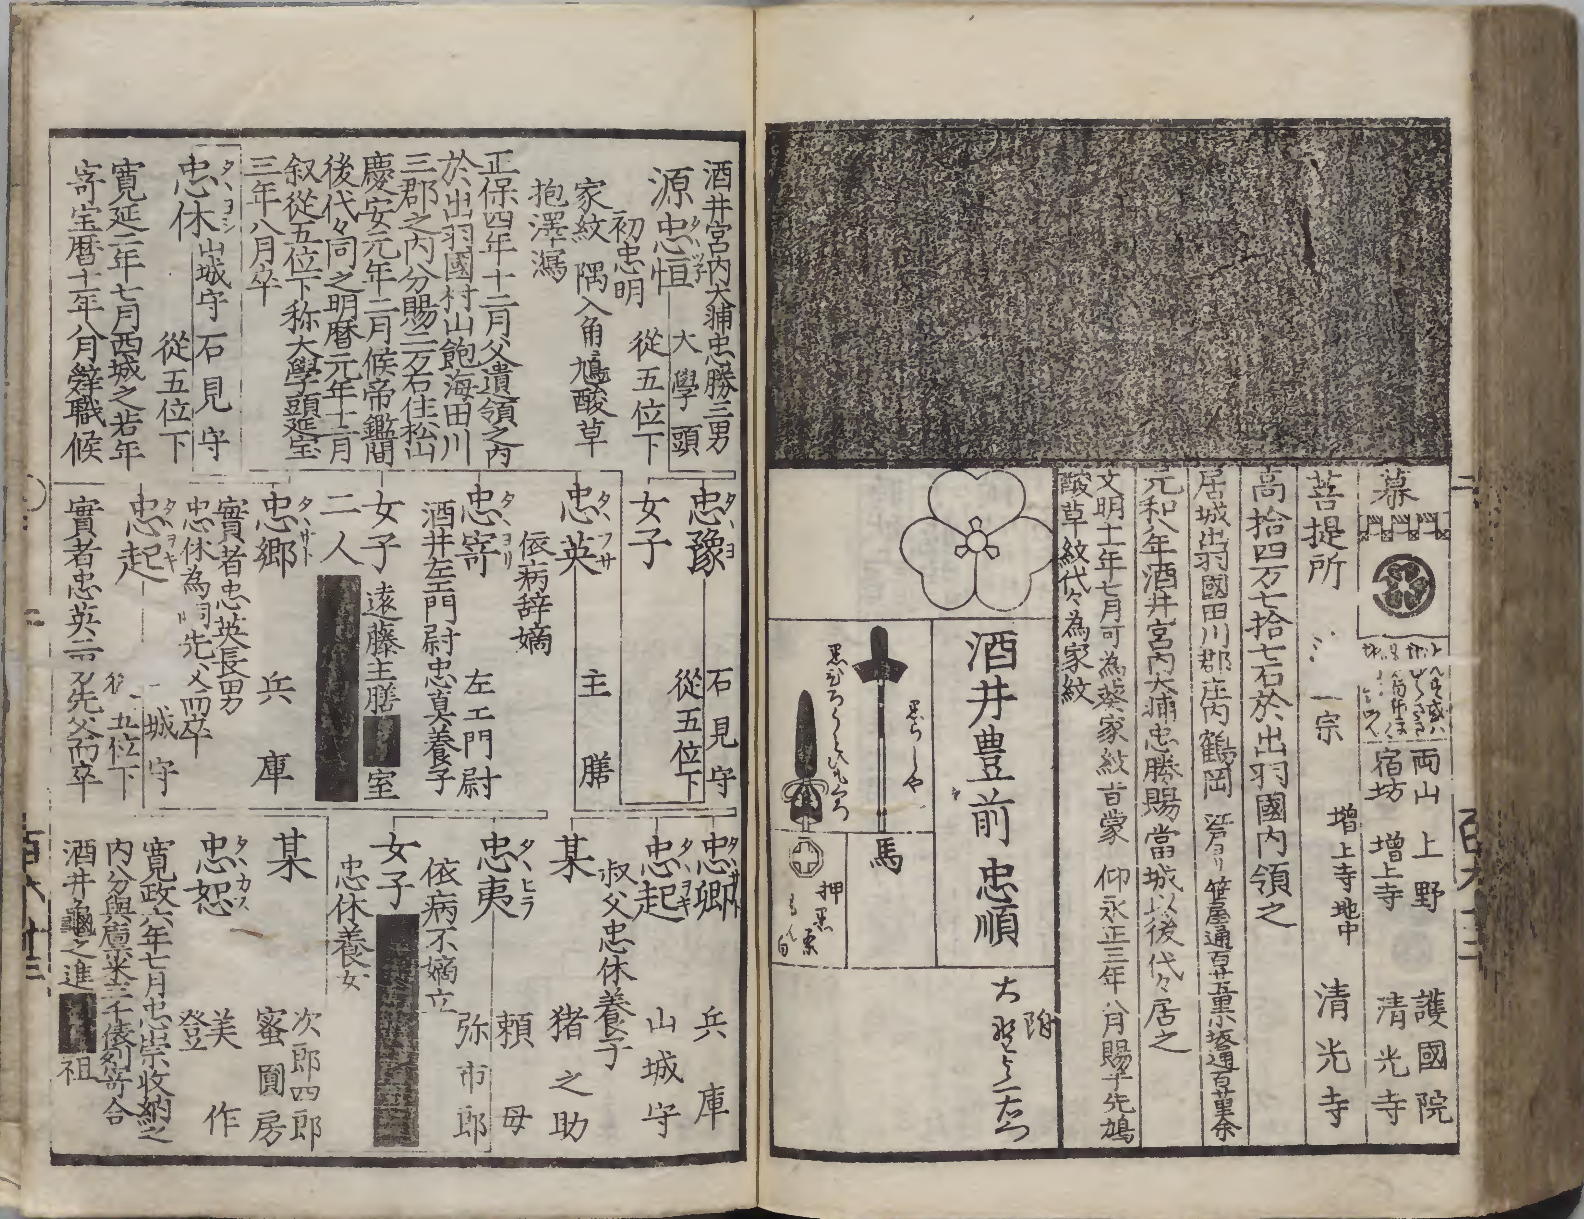 幕
両山 上野 護國院
宿坊 増上寺 清光寺
菩提所
宗 増上寺地中 清光寺
高拾四万七拾七石於出羽國内領之
居城出羽國田川郡庄内鶴岡
笹屋通百廿五里小坂通百廿里余
元和八年酒井宮内大輔忠勝賜當城以後代々居之
文明十一年七月可為葵家紋旨蒙 仰永正三年八月賜于先鳩
酸草紋代々為家紋
酒井豊前忠順
馬
押
酒井宮内大輔忠勝三男
源忠恒 大學頭
初忠明 從五位下
家紋 隅入角ニ鳩酸草
抱澤瀉
正保四年十二月父遺領之内
於出羽國村山飽海田川
三郡之内分賜二万石住松山
慶安元年二月候帝鑑間
後代々同之明暦元年十二月
叙從五位下称大學頭延宝
三年八月卒
忠休 タヽヨシ 山城守 石見守
從五位下
寛延二年七月西城之若年
寄宝暦十一年八月辞職候
忠豫 タヽヨ 石見守
從五位下
女子
忠英 タヽフサ 主膳
依病辞嫡
忠寄 タヽヨリ 左エ門尉
酒井左エ門尉忠真養子
女子 遠藤主膳 室
二人
忠郷 タヽサト 兵庫
實者忠英長男
忠休為嗣先父而卒
忠起 タヽヲキ 城守
五位下
實者忠英二男先父而卒
忠郷 タヽサト 兵庫
忠起 タヽヲキ 山城守
叔父忠休養子
某 猪之助
忠夷 タヽヒラ 頼母
依病不嫡立 弥市郎
女子
忠休養女
某 次郎四郎
蜜圓房
忠恕 タヽカス 美作
登
寛政六年七月忠崇收納之
内分與廩米三千俵列寄合
酒井龜之進 祖